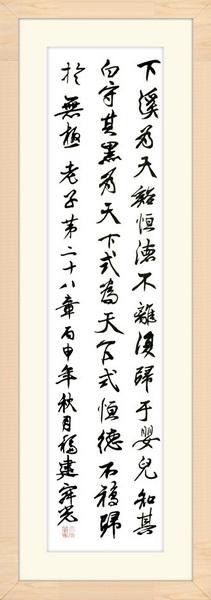 下溪为天谿恒德不離復歸于嬰兒知其
白守其黑为天下式為天下式恒德不忒歸
於無極 老子第二十八章 丙申年秋月福建